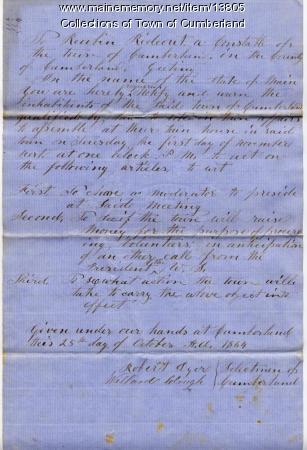 www.mainememory.net/item/13805
Collections of Town of Cumberland
To Reubin Rideout a Constable of
the town of Cumberland, in the County
of Cumberland, Greeting
In the name of the State of Maine
you are hereby Notify and warn the
inhabitants of the said town of Cumberland
qualified by law to vote in town affairs
to assemble at their town house in said
town on Tuesday the first day of November
next at one oclock P. M. to act on
the following articles to wit
First To chose a moderator to preside
at said meeting
Second, To see if the town will raise
Money for the purpose of procur
ing Volunteers in anticipation
of an other call from the
President of the U. S.
Third To see what action the town will
take to carry the above object into
effect
Given under our hands at Cumberland
this 25th day of October A.D. 1864
Robert Dyer Selectmen of
Willard Clough Cumberland